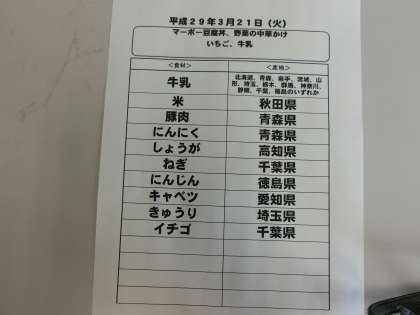 平成２９年３月２１日（火）
マーボー豆腐丼、野菜の中華かけ
いちご、牛乳
＜食材＞ ＜産地＞
牛乳 北海道、青森、岩手、宮城、山
形、埼玉、栃木、群馬、神奈川、
静岡、千葉、徳島のいずれか
米 秋田県
豚肉 青森県
にんにく 青森県
しょうが 高知県
ねぎ 千葉県
にんじん 徳島県
キャベツ 愛知県
きゅうり 埼玉県
イチゴ 千葉県